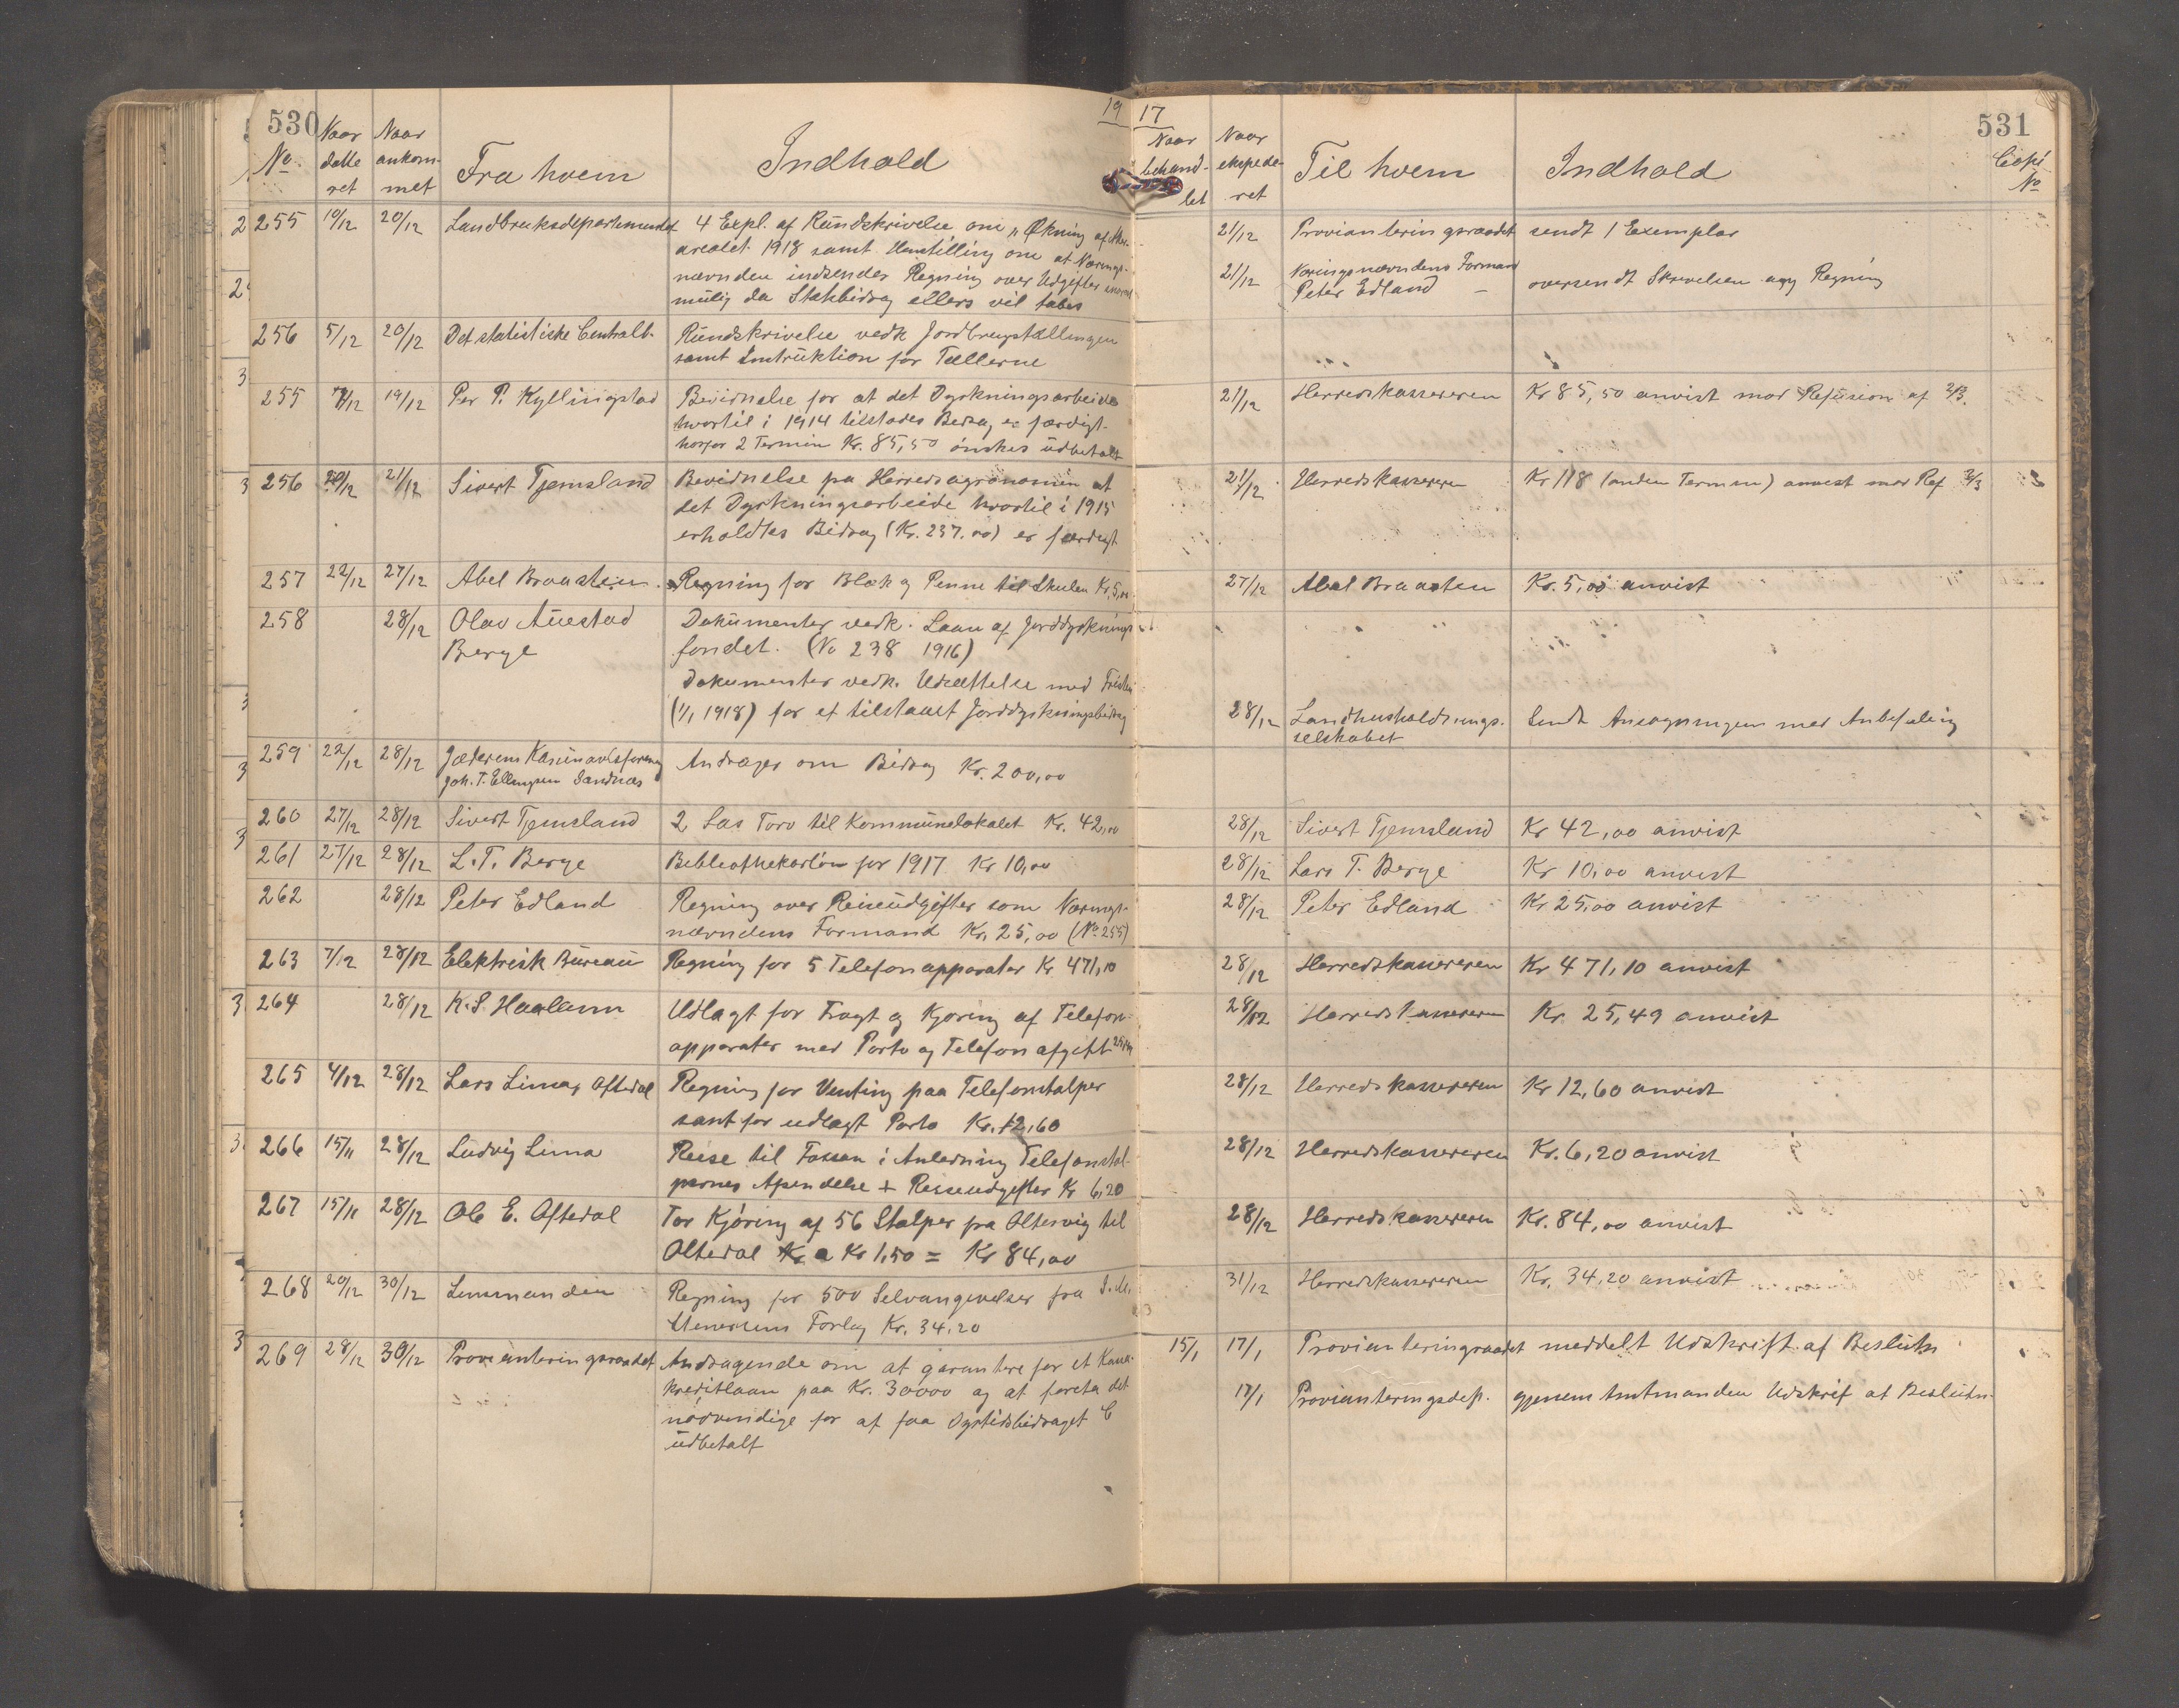 530
19
No.
Naar datte ret
Naar ankom- met
Fra hvem
Indhold
255 10/12 20/12 Landbruksdepartementet 4 Expl. af Rundskrivelse om „Økning af Aker-
arealet 1918 samt Henstilling om at Nærings-
nævnden indsender Regning over Udgifter snarest
mulig da Statsbidrag ellers vil tabes
256 5/12 20/12 Det statistiske Centralb. Rundskrivelse vedk Jordbrugstællingen
samt Instruktion for Tællerne
255 7/12 19/12 Per P. Kyllingstad Bevidnelse for at det Dyrkningsarbeide
hvortil i 1914 tilstodes Bidrag er færdigt
hvorfor 2 Termin Kr. 85,50 ønskes udbetalt
256 20/12 21/12 Sivert Tjemsland Bevidnelse fra Herredsagronomen at
det Dyrkningsarbeide hvortil i 1915
erholdtes Bidrag (Kr. 237.00) er færdigt
257 22/12 27/12 Abel Braasten Regning for Blæk og Penne til Skulen Kr. 5,00
258 28/12 Olav Auestad Dokumenter vedk. Laan af Jorddyrknings-
Berge fondet. (No 238 1916)
Dokumenter vedk. Udsættelse med Fristen
(1/1 1918) for et tilstaaet Jorddyrkningsbidrag
259 22/12 28/12 Jæderens Andrager om Bidrag Kr. 200,00
Joh. T. Ellingsen Sandnæs
260 27/12 28/12 Sivert Tjemsland 2 Læs Torv til Kommunelokalet Kr. 42,00
261 27/12 28/12 L. T. Berge Bibliothekarløn for 1917 Kr 10,00
262 28/12 Peter Edland Regning over Reiseudgifter som Nærings-
nævndens Formand Kr. 25,00 (No 255)
263 7/12 28/12 Elektrisk Bureau Regning for 5 Telefonapparater Kr 471,10
264 28/12 K. S. Haaland Udlagt for Fragt og Kjøring af Telefon-
apparater med Porto og Telefonafgift 25,49
265 4/12 28/12 Lars Lima, Oftedal Regning for Venting paa Telefonstolper
samt for udlagt Porto Kr. 12,60
266 15/11 28/12 Ludvig Lima Reise til Fossan i Anledning Telefonstol-
pernes Afsendelse + Reiseudgifter Kr 6,20
267 15/11 28/12 Ole E. Oftedal For Kjøring af 56 Stolper fra Oltesvig til
Oltedal Kr a Kr 1,50 = Kr 84,00
268 20/12 30/12 Lensmanden Regning for 500 Selvangivelser fra
Stenersens Forlag Kr. 34,20
269 28/12 30/12 Provianteringsraadet Andragende om at garantere for et Kasse-
kreditlaan paa Kr. 30000 og at foreta det
nødvendige for at faa Dyrtidsbidraget
udbetalt
17
531
Naar behand- let
Naar ekspede- ret
Til hvem
Indhold
Copi No
21/12 Provianteringsraadet sendt 1 Exemplar
21/12 Næringsnævndens Formand
Peter Edland – oversendt Skrivelsen ang Regning
21/12 Herredskassereren Kr 85,50 anvist mod Refusion af 2/3.
21/12 Herredskassereren Kr 118 (anden Termin) anvist mod Ref 2/3
27/12 Abel Braasten Kr. 5,00 anvist
28/12 Landhusholdnings- Sendt Ansøgningen med Anbefaling
selskabet
28/12 Sivert Tjemsland Kr 42,00 anvist
28/12 Lars T. Berge Kr 10,00 anvist
28/12 Peter Edland Kr 25,00 anvist
28/12 Herredskassereren Kr 471,10 anvist
28/12 Herredskassereren Kr. 25,49 anvist
28/12 Herredskassereren Kr 12,60 anvist
28/12 Herredskassereren Kr. 6,20 anvist
28/12 Herredskassereren Kr. 84,00 anvist
31/12 Herredskassereren Kr. 34,20 anvist
15/1 17/1 Provianteringsraadet meddelt Udskrift af Beslutn
17/1 Provianteringsdep. gjennem Amtmanden Udskrift af Beslutn.